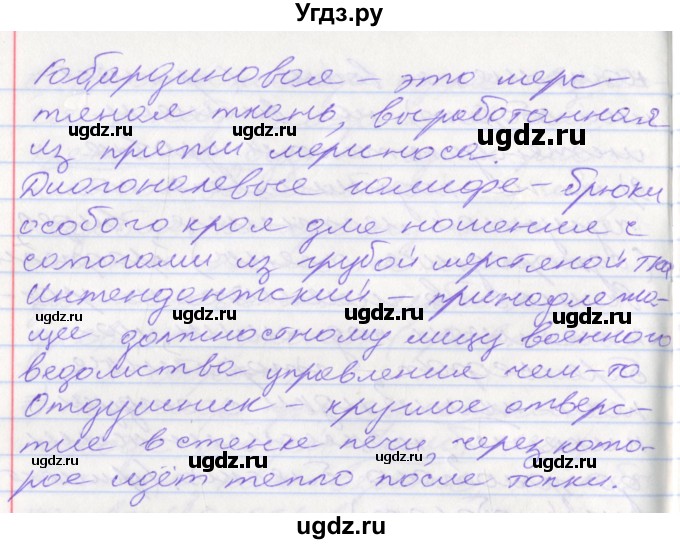 Угдз.ру
Габардиновая – это шерс-
тяная ткань, выработанная
из пряжи мериноса.
Диагоналевые галифе – брюки
особого кроя для ношения с
сапогами из грубой шерстяной тка
Интендантский – принадлежа-
щее должностному лицу военного
ведомства управления чем-то
Отдушник – круглое отверс-
тие в стенке печи, через кото-
рое идёт тепло после топки.
ugdz.ru ugdz.ru ugdz.ru
ugdz.ru ugdz.ru ugdz.ru
ugdz.ru ugdz.ru ugdz.ru
ugdz.ru ugdz.ru ugdz.ru
ugdz.ru ugdz.ru ugdz.ru
ugdz.ru ugdz.ru ugdz.ru
ugdz.ru